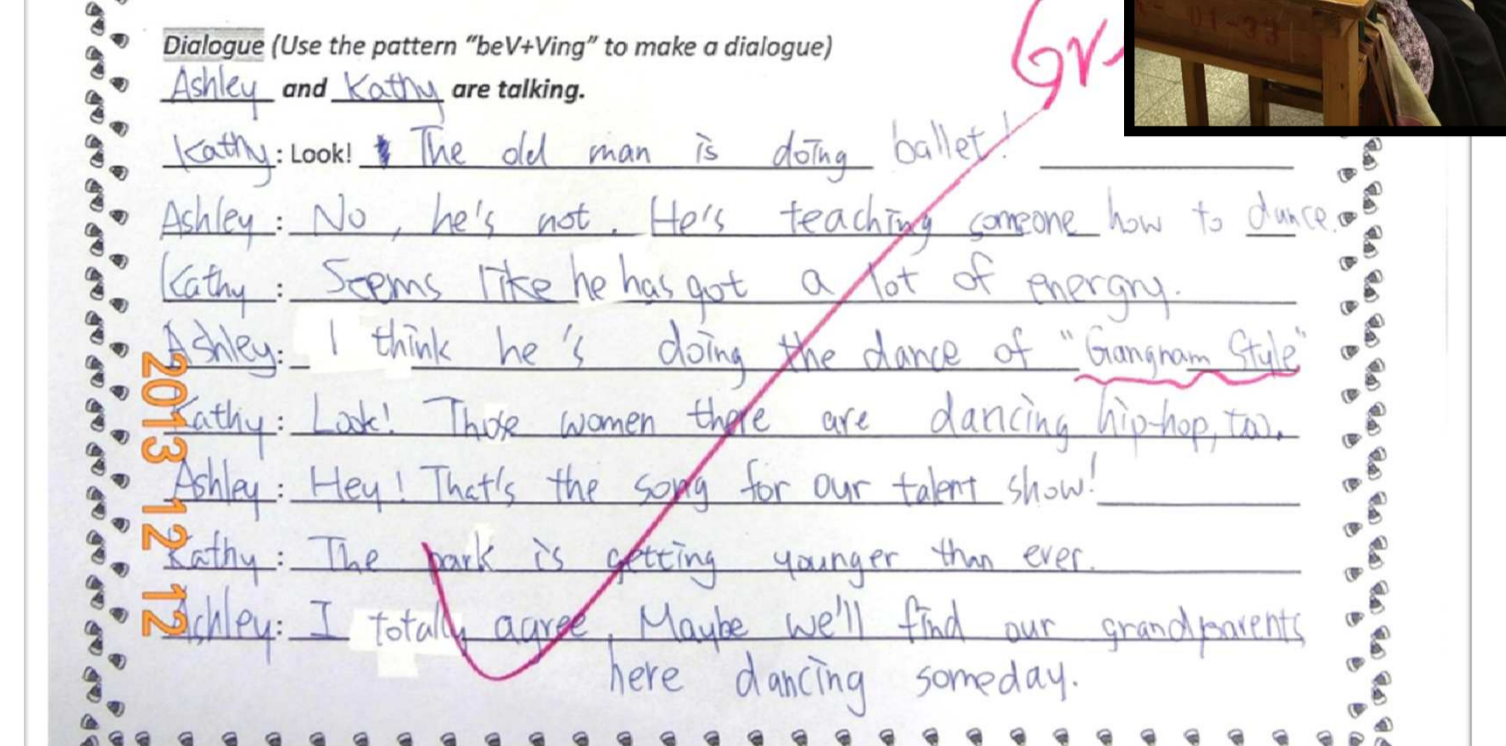 Dialogue (Use the pattern “beV+Ving” to make a dialogue)
Ashley and Kathy are talking.
Kathy: Look! The old man is doing ballet!
Ashley: No, he's not. He's teaching someone how to dance.
Kathy: Seems like he has got a lot of energry.
Ashley: I think he's doing the dance of "Gangnam Style"
Kathy: Look! Those women there are dancing hip-hop, too.
Ashley: Hey! That's the song for our talent show!
Kathy: The park is getting younger than ever.
Ashley: I totally agree. Maybe we'll find our grandparents
here dancing someday.
2013 12 12
01-33